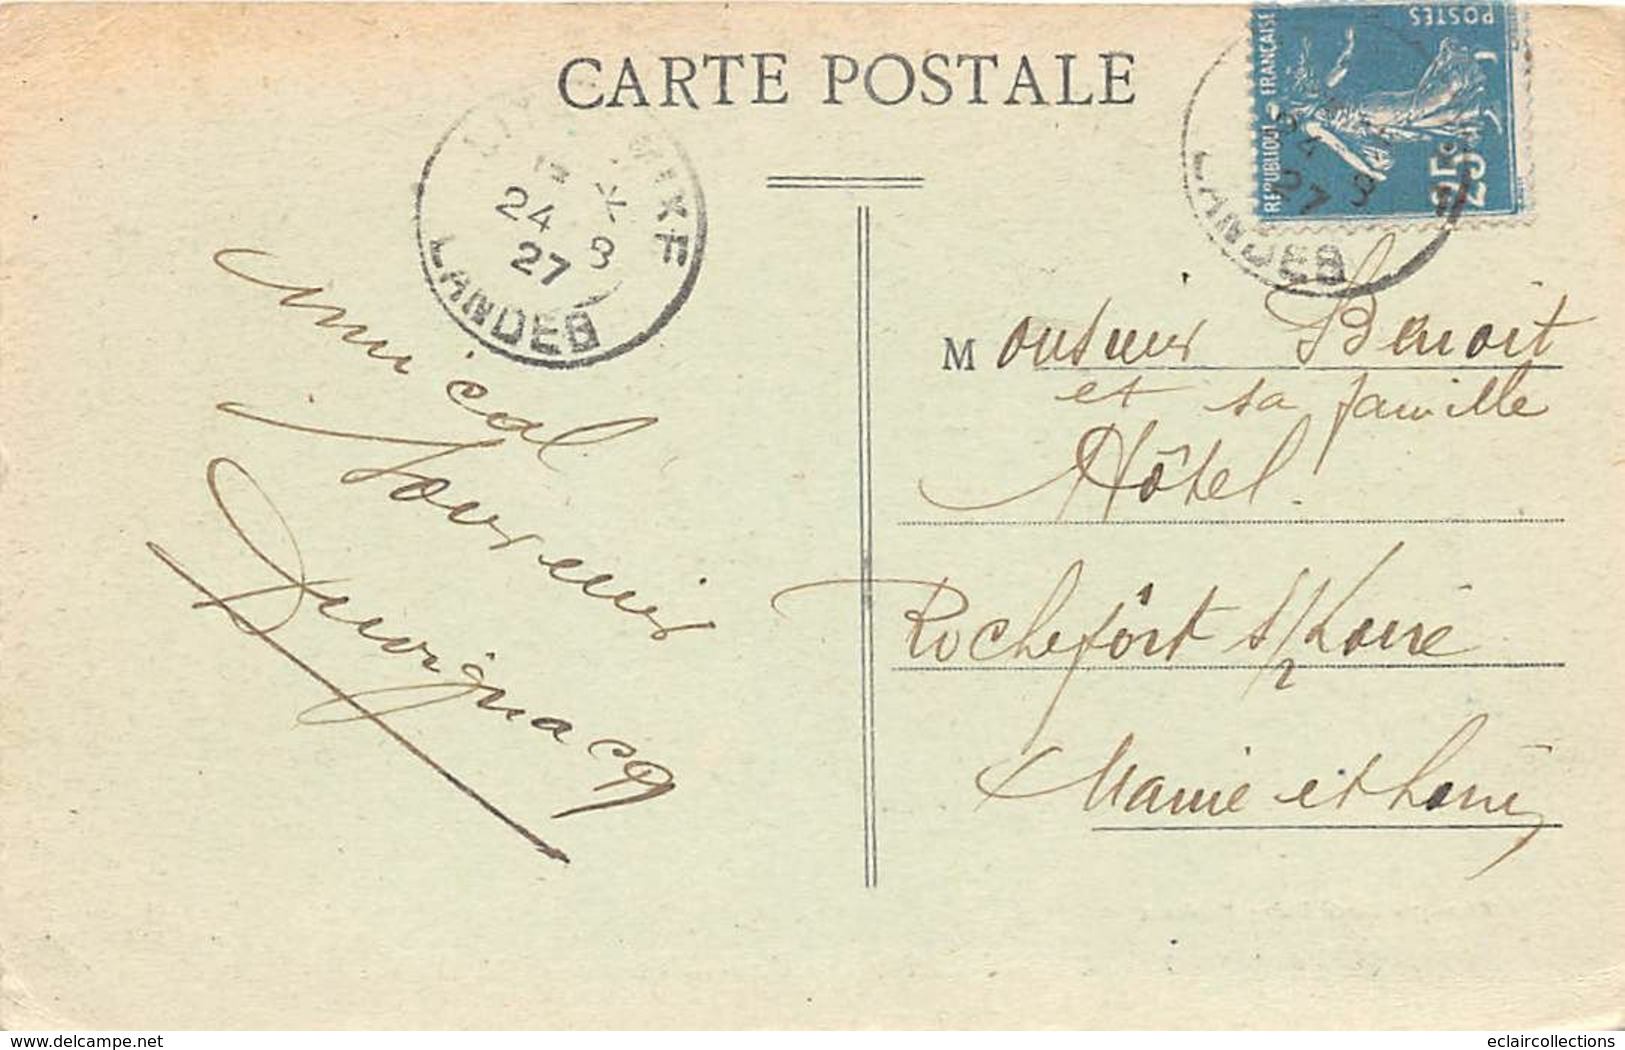 CARTE POSTALE
POSTES
REPUBLIQUE FRANÇAISE
25c
24 8
27
LANDES
24 8
27
LANDES
amical
souvenir
Duvignacq
Monsieur Benoit
et sa famille
Hôtel
Rochefort s/ Loire
Maine et Loire
delcampe.net
eclaircollections